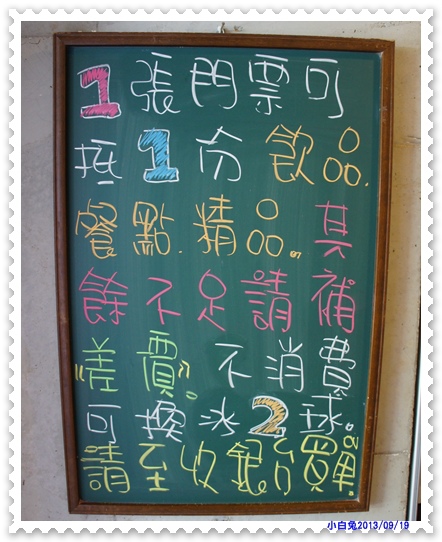 1張門票可
抵1份飲品.
餐點.精品.其
餘不足請補
"差價"。不消費
可換冰2球。
請至收銀台買單。
小白兔2013/09/19